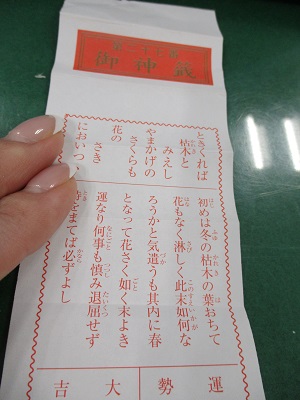 御神籤
ときくれば
枯木と
みえし
やまかげの
さくらも
花の
さき
においつ
初めは冬の枯木の葉おちて
花もなく淋しく此末如何な
ろうかと気遣うも其内に春
となって花さく如く末よき
運なり何事も慎み退屈せず
時をまてば必ずよし
運勢
大吉